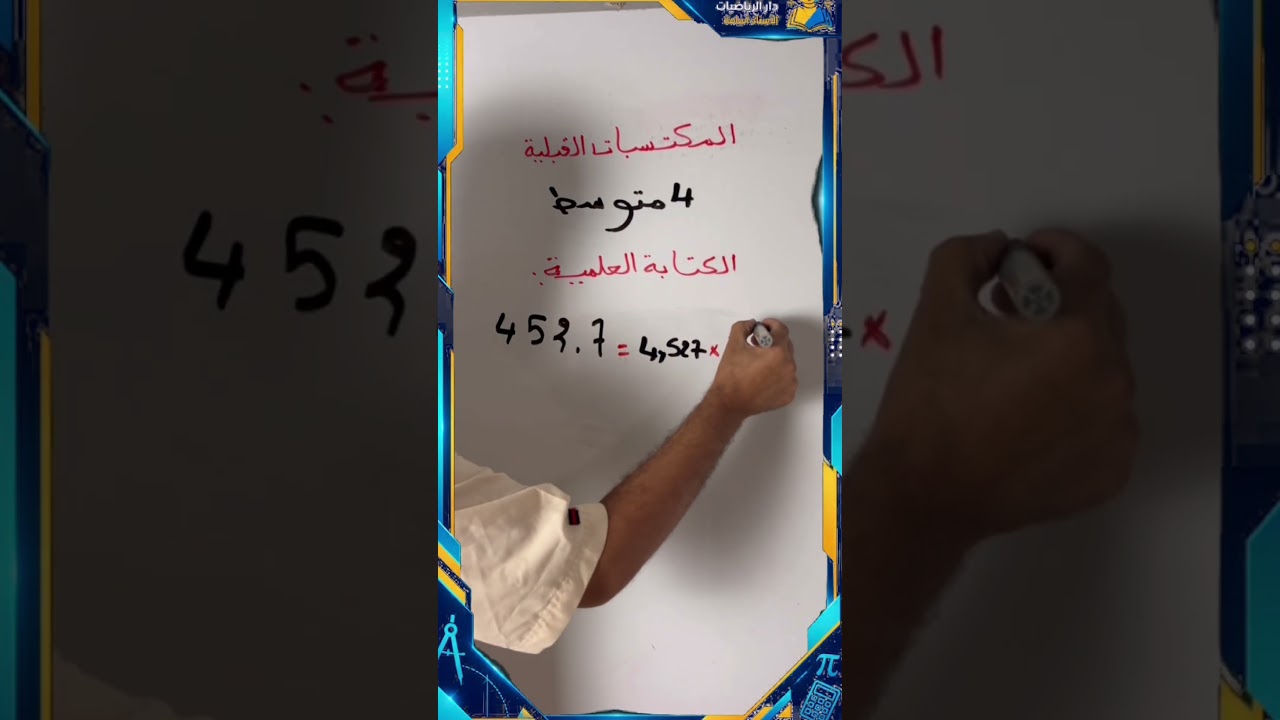 دار الرياضيات
المكتسبات القبلية
4 متوسط
الكتابة العلمية:
452.7 = 4,527 ×